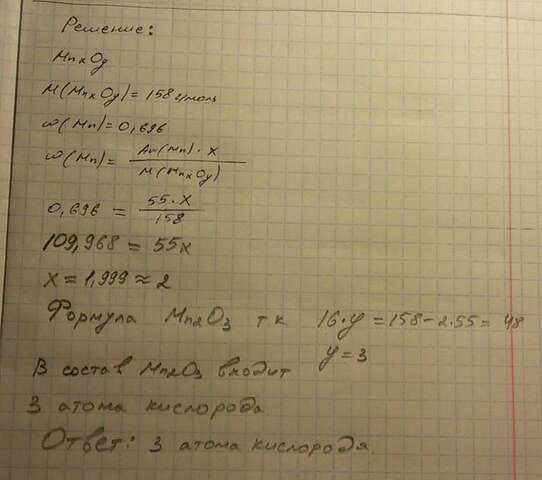 Решение:
MnxOy
M(MnxOy) = 158 г/моль
ω(Mn) = 0,696
ω(Mn) = Ar(Mn) · x / M(MnxOy)
0,696 = 55·x / 158
109,968 = 55x
x = 1,999 ≈ 2
Формула Mn2O3 т к 16·y = 158 − 2·55 = 48
y = 3
В состав Mn2O3 входит
3 атома кислорода
Ответ: 3 атома кислорода.